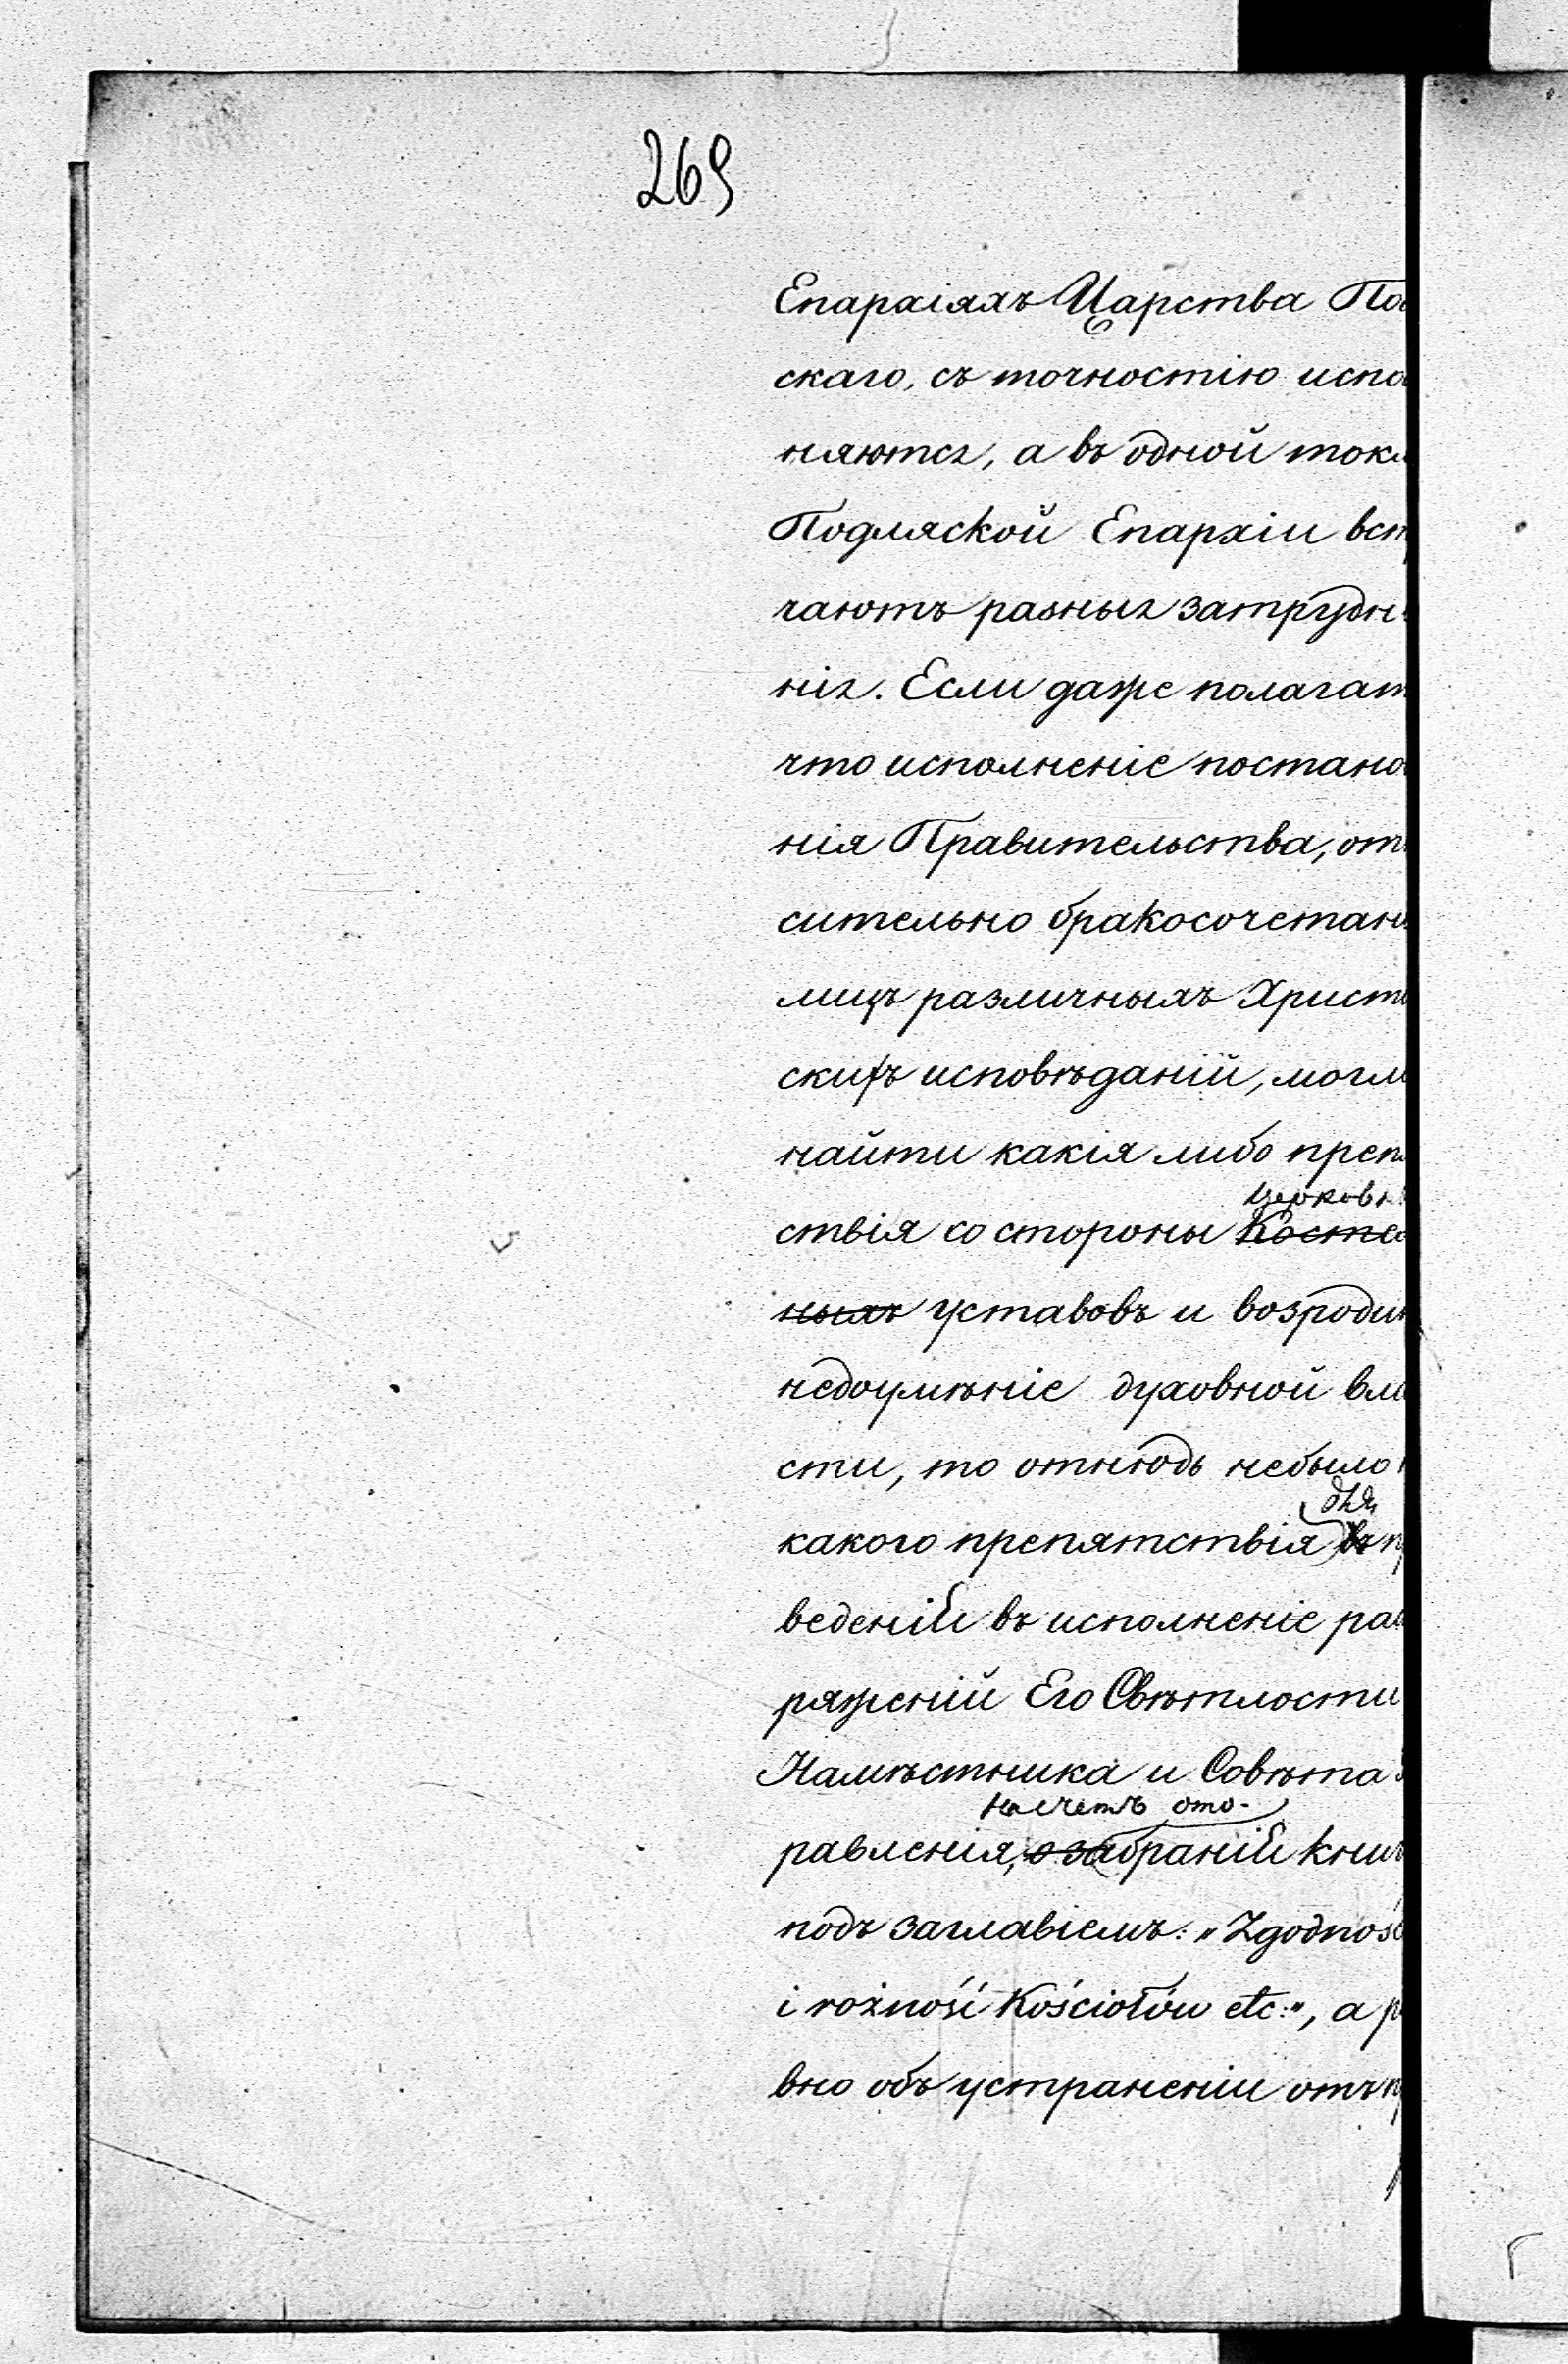 269
Епархіяхъ Царства По
скаго, съ точностію испо
няются, а въ одной токм
Подляской Епархіи вст
чаютъ разныя затрудн
нія. Если даже полагат
что исполненіе постано
нія Правительства, отн
сительно бракосочетан
лицъ различныхъ Христі
скихъ исповѣданій, могл
найти какія либо преп
церковн
ствія со стороны Косте
ныхъ уставовъ и возроди
недоумѣніе духовной вла
сти, то отнюдь небыло
для
какого препятствія въ п
веденій въ исполненіе ра
ряженій Его Свѣтлости
Намѣстника и Совѣта
насчетъ ото-
равленія, о забраній кни
подъ заглавіемъ: „Zgodnoś
i rożnośi Kościołów etc:", а р
вно объ устраненіи отъ п